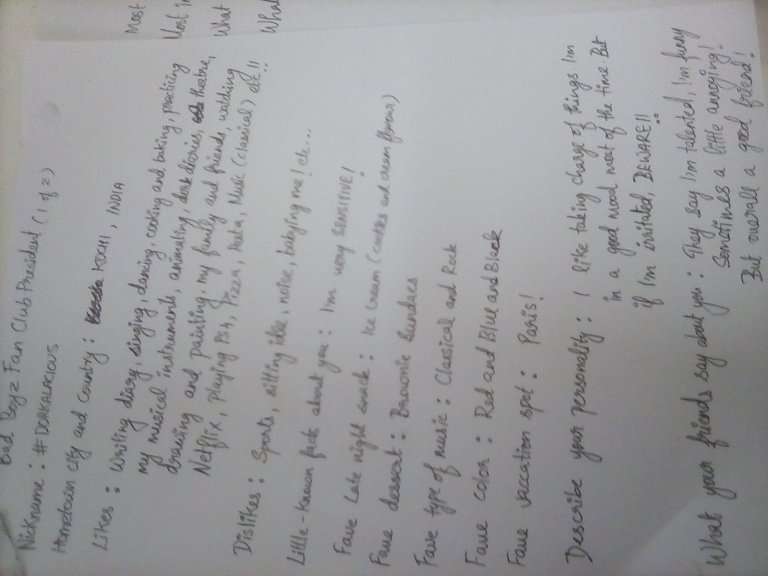 Bad Boyz Fan Club President (1 of 2)
Nickname : #DORKALICIOUS
Hometown City and Country : KOCHI, INDIA
Likes : Writing diary, singing, dancing, cooking and baking, practicing
my musical instruments, animating, dork diaries, theatre,
drawing and painting, my family and friends, watching
Netflix, playing PS4, Pizza, Pasta, Music (classical) etc!!
Dislikes : Sports, sitting idle, noise, babying me! etc...
Little-known facts about you : I'm very SENSITIVE!
Fave late night snack : Ice cream (cookies and cream flavour)
Fave dessert : Brownie Sundaes
Fave type of music : Classical and Rock
Fave color : Red and Blue and Black
Fave vaccation spot : Paris!
Describe your personality : I like taking charge of things I'm
in a good mood most of the time But
if I'm irritated BEWARE!!
What your friends say about you : They say I'm talented, I'm funny
Sometimes a little annoying!
But overall a good friend!
Most
Most i
What
What